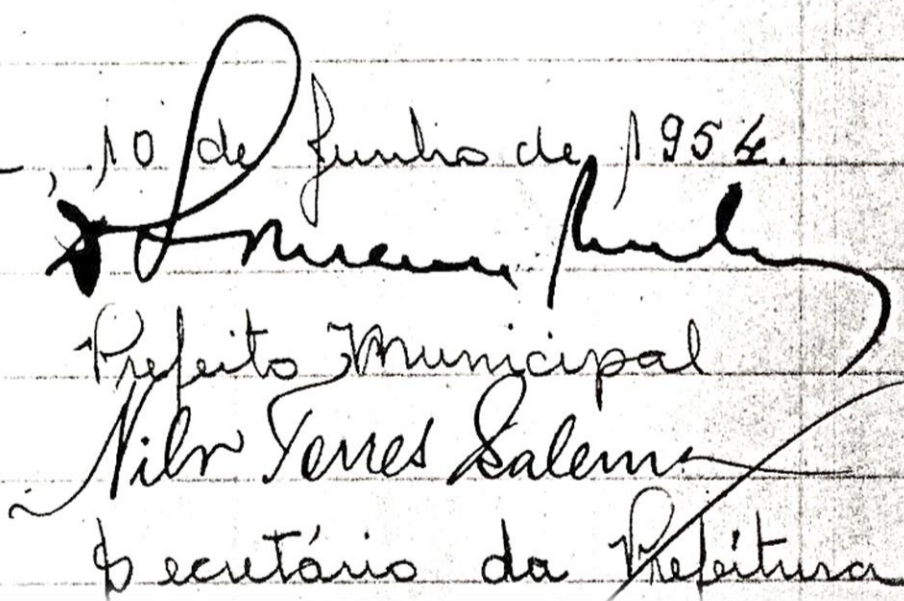 , 10 de Junho de 1954.
Prefeito Municipal
Nilo Torres Salema
Secretário da Prefeitura